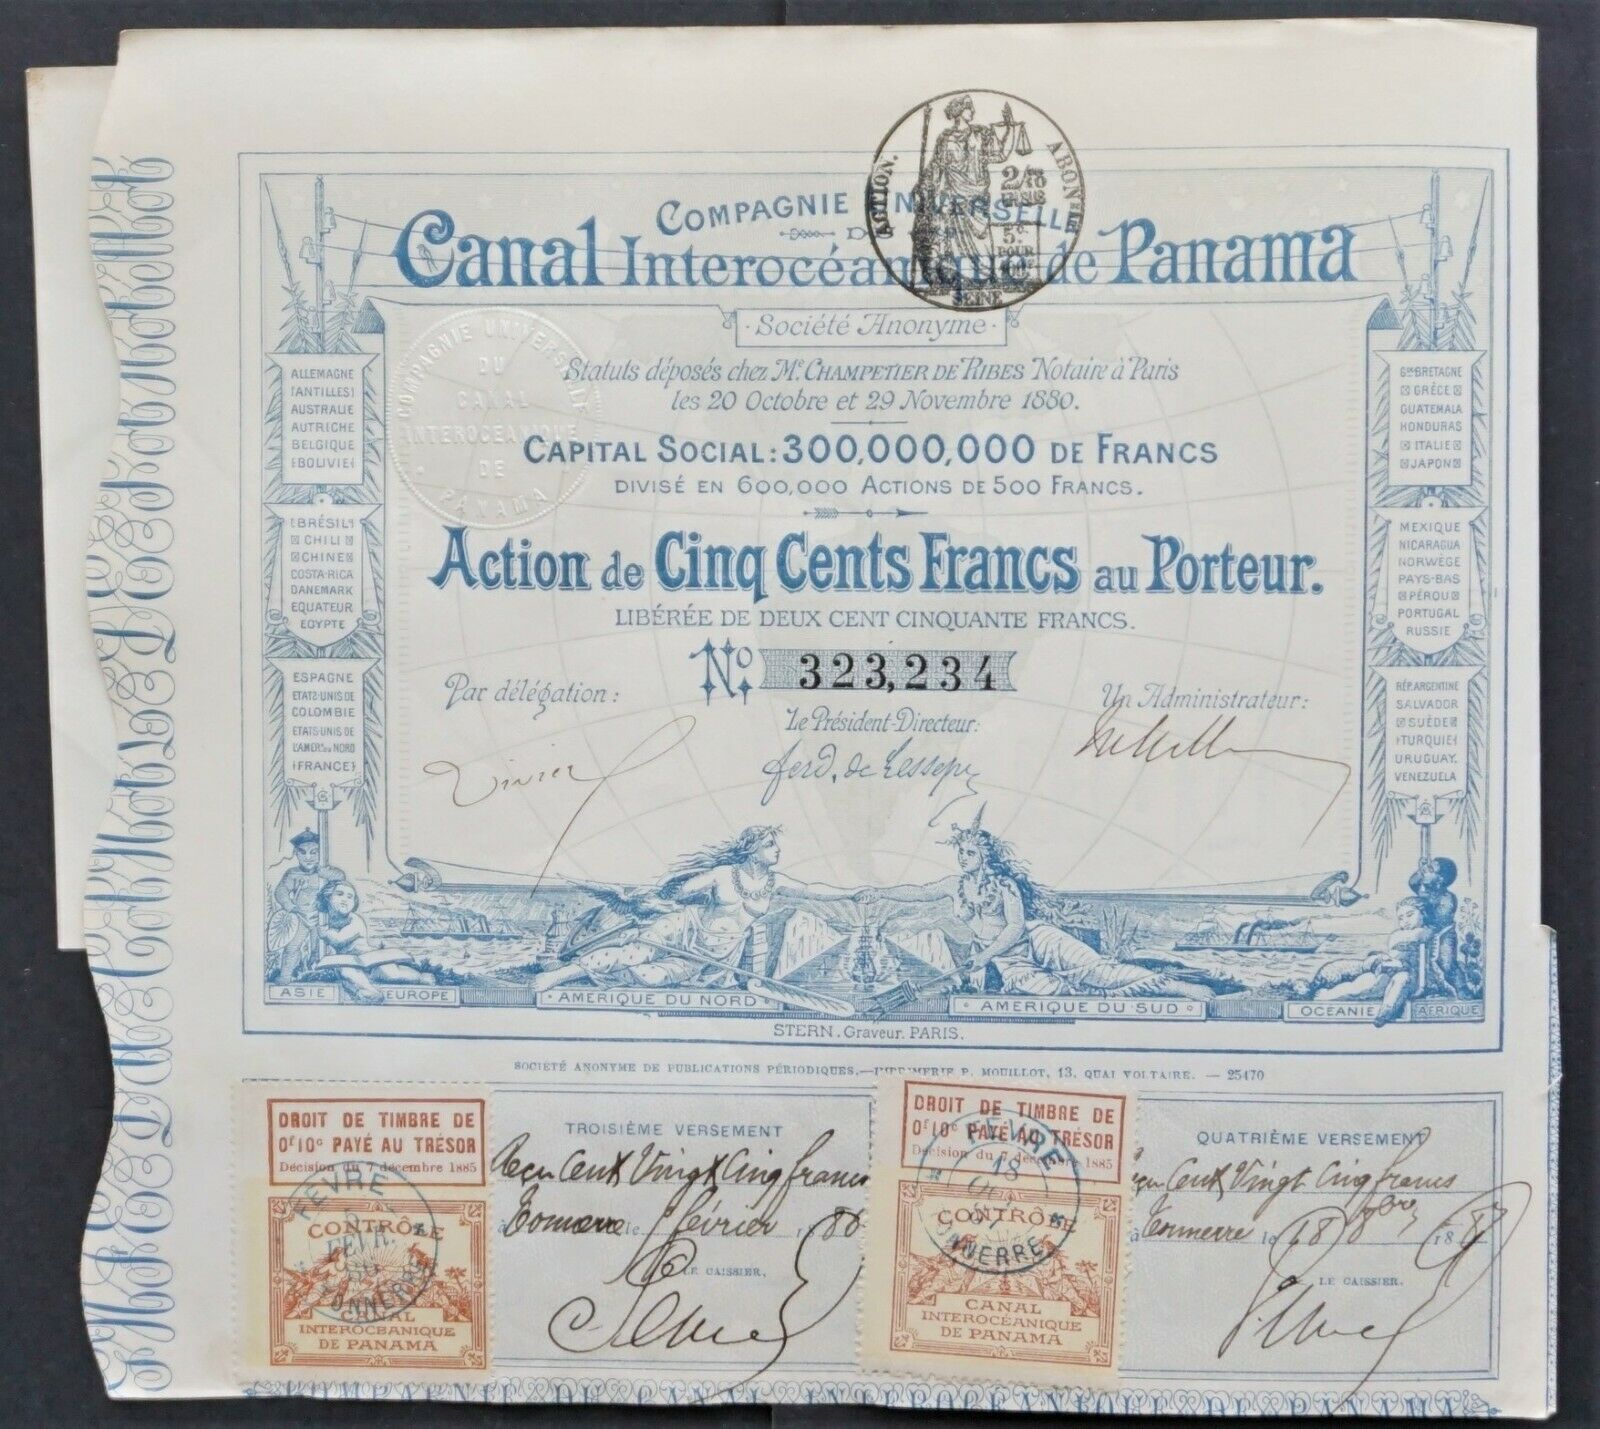 ACTION.
ABON.NT
2/10
EN SUS
5c.
POUR
100c
SEINE
COMPAGNIE UNIVERSELLE
DU
Canal Interocéanique de Panama
·Société Anonyme·
Statuts déposés chez Me. CHAMPETIER DE RIBES Notaire à Paris
les 20 Octobre et 29 Novembre 1880.
CAPITAL SOCIAL: 300,000,000 DE FRANCS
DIVISÉ EN 600,000 ACTIONS DE 500 FRANCS.
Action de Cinq Cents Francs au Porteur.
LIBÉRÉE DE DEUX CENT CINQUANTE FRANCS.
No. 323,234
Par délégation:
Le Président-Directeur:
Un Administrateur:
ferd. de Lesseps
COMPAGNIE UNIVERSELLE
DU
CANAL
INTEROCEANIQUE
DE
PANAMA
ALLEMAGNE
ANTILLES
AUSTRALIE
AUTRICHE
BELGIQUE
BOLIVIE
BRÉSIL
CHILI
CHINE
COSTA-RICA
DANEMARK
EQUATEUR
EGYPTE
ESPAGNE
ETATS-UNIS DE
COLOMBIE
ETATS-UNIS DE
L'AMERQ. DU NORD
FRANCE
GDE BRETAGNE
GRÈCE
GUATEMALA
HONDURAS
ITALIE
JAPON
MEXIQUE
NICARAGUA
NORWEGE
PAYS-BAS
PÉROU
PORTUGAL
RUSSIE
RÉP. ARGENTINE
SALVADOR
SUÈDE
TURQUIE
URUGUAY.
VENEZUELA
ASIE
EUROPE
AMERIQUE DU NORD
AMERIQUE DU SUD
OCÉANIE
AFRIQUE
STERN. Graveur. PARIS.
SOCIÉTÉ ANONYME DE PUBLICATIONS PÉRIODIQUES.—IMPRIMERIE P. MOUILLOT, 13, QUAI VOLTAIRE. — 25470
DROIT DE TIMBRE DE
0f10c PAYÉ AU TRÉSOR
Décision du 7 décembre 1885
CONTRÔLE
CANAL
INTEROCÉANIQUE
DE PANAMA
FEVRE
FEVR.
86
TONNERRE
TROISIÈME VERSEMENT
Reçu Cent Vingt Cinq francs
à Tonnerre le février 1886
LE CAISSIER,
DROIT DE TIMBRE DE
0f10c PAYÉ AU TRÉSOR
Décision du 7 décembre 1885
CONTRÔLE
CANAL
INTEROCÉANIQUE
DE PANAMA
FEVRE
18
TONNERRE
QUATRIÈME VERSEMENT
Reçu Cent Vingt Cinq francs
à Tonnerre le 18 8bre 1887
LE CAISSIER,
COMPAGNIE DE CANAL INTEROCÉANIQUE DE PANAMA